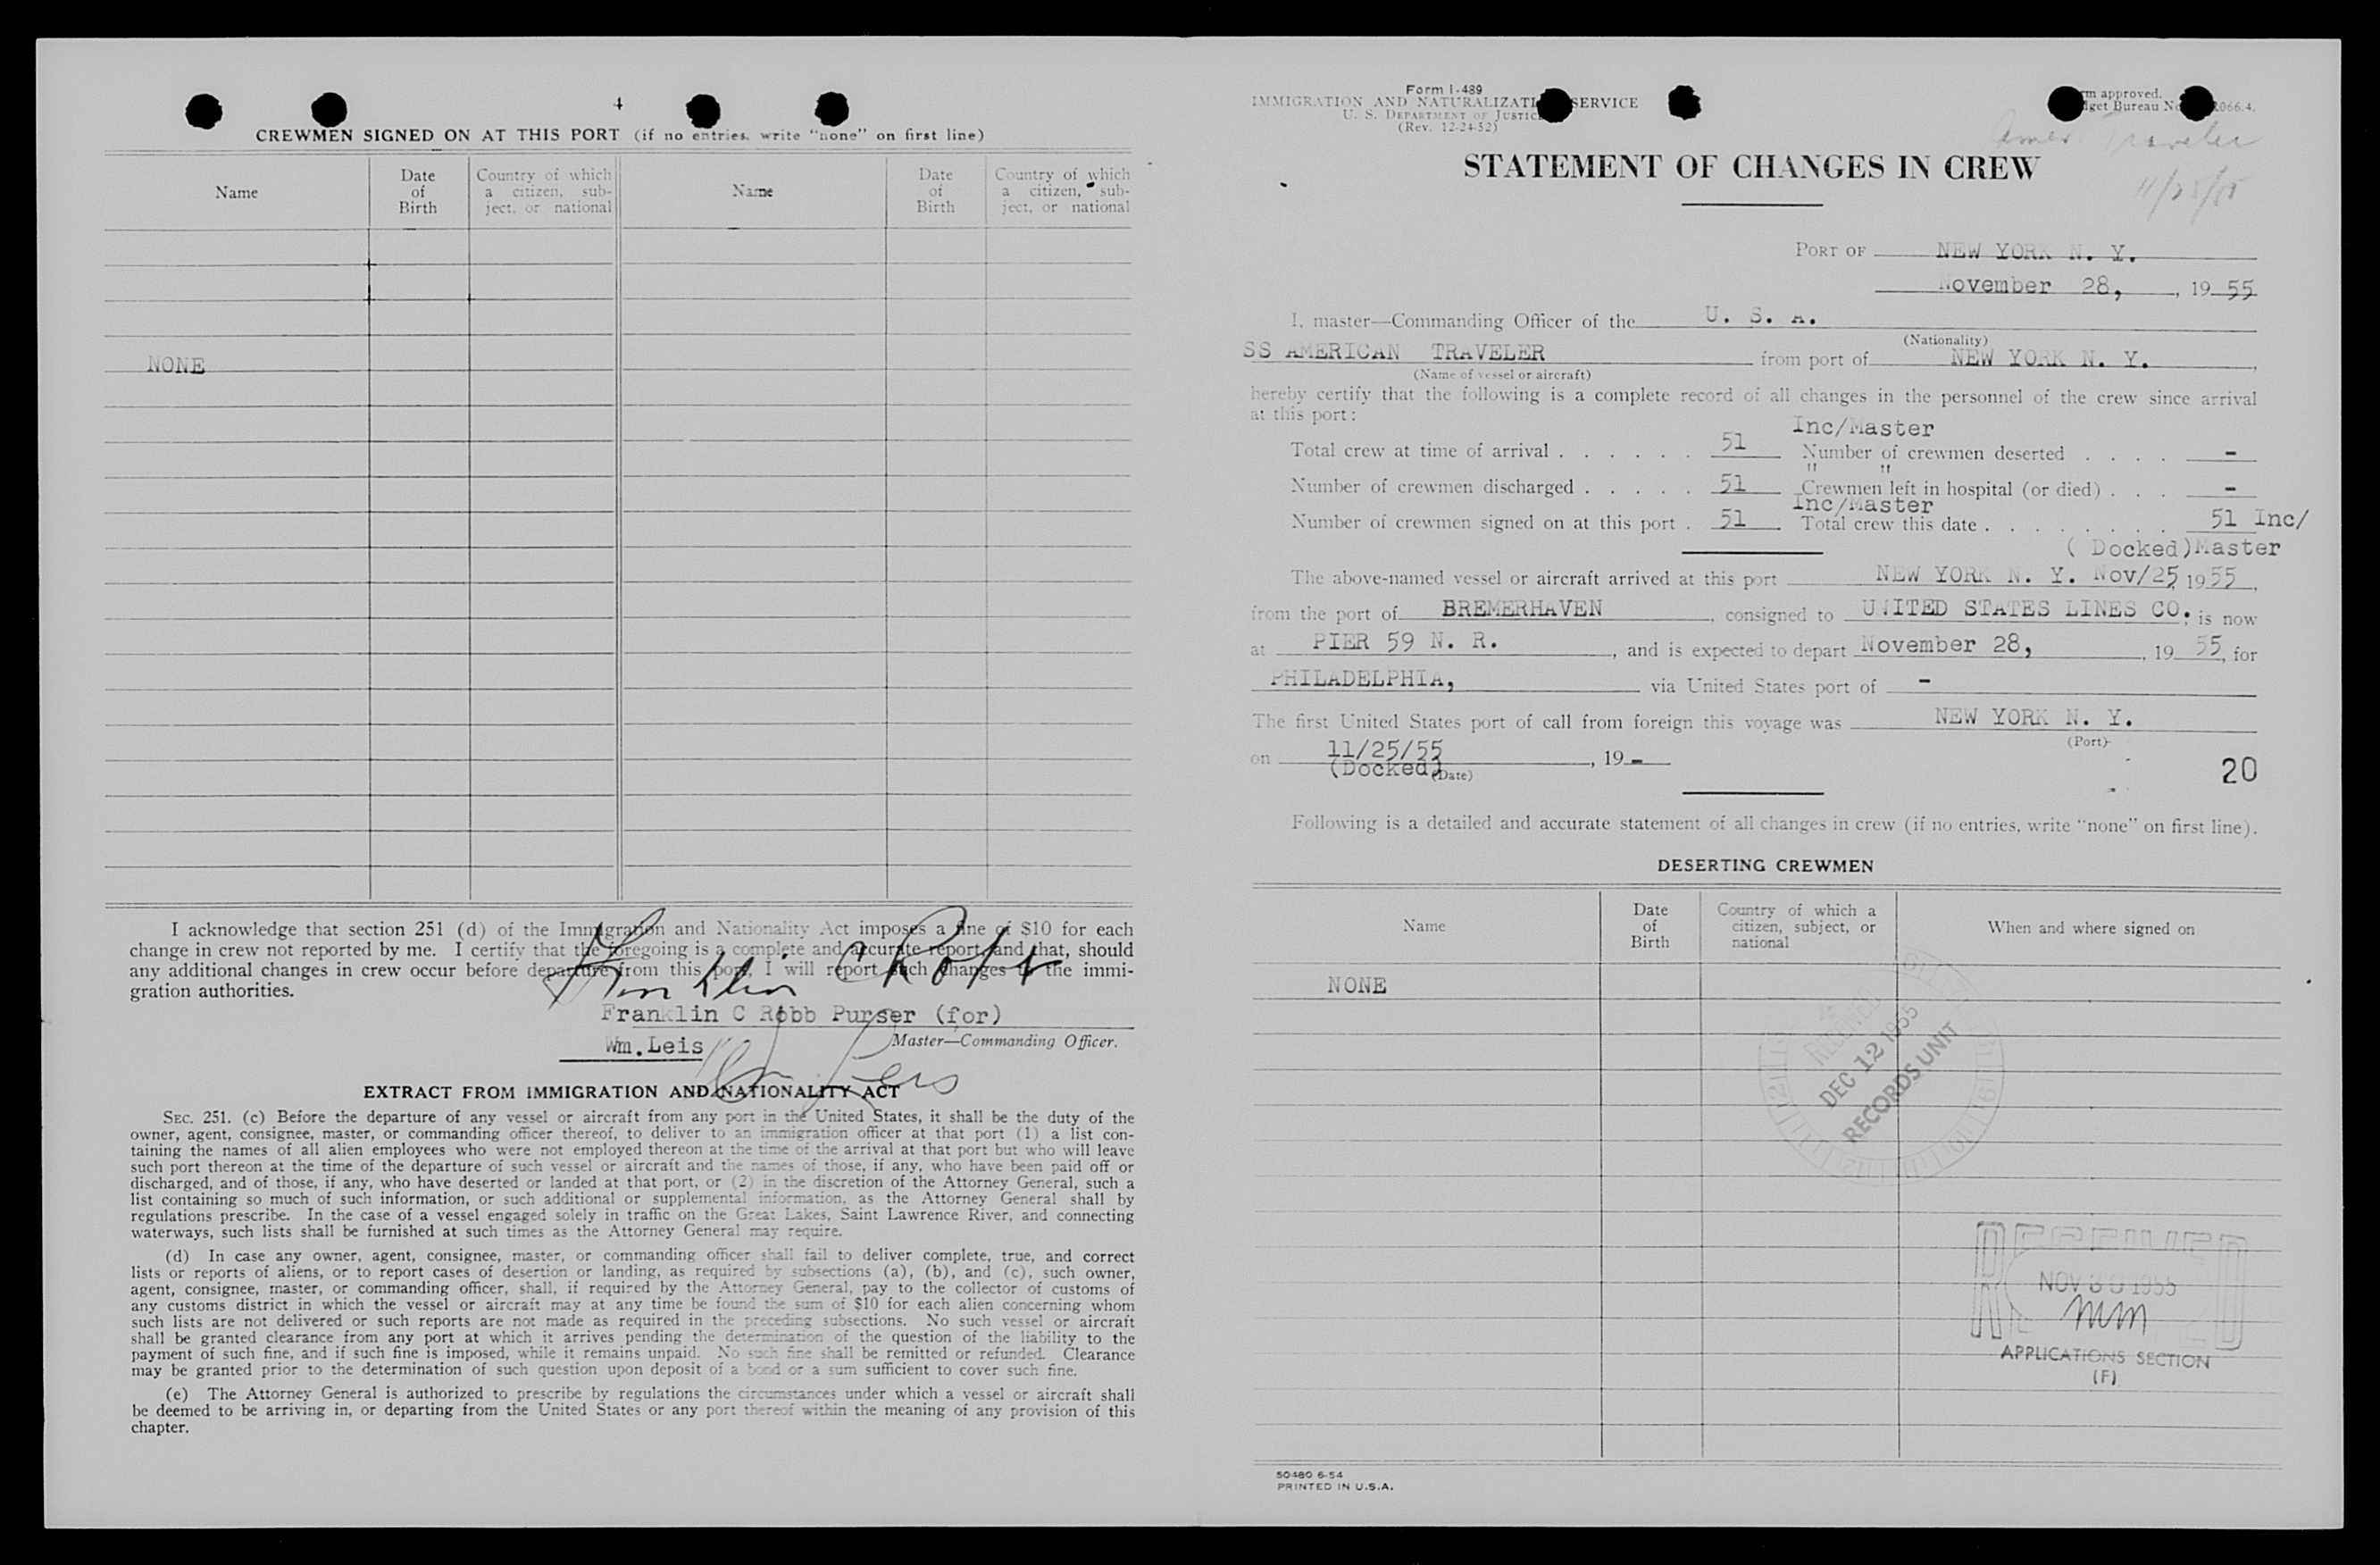 4
CREWMEN SIGNED ON AT THIS PORT (if no entries, write "none" on first line)
Name
Date of Birth
Country of which a citizen, subject, or national
Name
Date of Birth
Country of which a citizen, subject, or national
NONE
I acknowledge that section 251 (d) of the Immigration and Nationality Act imposes a fine of $10 for each
change in crew not reported by me. I certify that the foregoing is a complete and accurate report, and that, should
any additional changes in crew occur before departure from this port, I will report such changes to the immi-
gration authorities.
Franklin C Robb
Franklin C Robb Purser (for)
Wm.Leis
Master—Commanding Officer.
EXTRACT FROM IMMIGRATION AND NATIONALITY ACT
SEC. 251. (c) Before the departure of any vessel or aircraft from any port in the United States, it shall be the duty of the
owner, agent, consignee, master, or commanding officer thereof, to deliver to an immigration officer at that port (1) a list con-
taining the names of all alien employees who were not employed thereon at the time of the arrival at that port but who will leave
such port thereon at the time of the departure of such vessel or aircraft and the names of those, if any, who have been paid off or
discharged, and of those, if any, who have deserted or landed at that port, or (2) in the discretion of the Attorney General, such a
list containing so much of such information, or such additional or supplemental information, as the Attorney General shall by
regulations prescribe. In the case of a vessel engaged solely in traffic on the Great Lakes, Saint Lawrence River, and connecting
waterways, such lists shall be furnished at such times as the Attorney General may require.
(d) In case any owner, agent, consignee, master, or commanding officer shall fail to deliver complete, true, and correct
lists or reports of aliens, or to report cases of desertion or landing, as required by subsections (a), (b), and (c), such owner,
agent, consignee, master, or commanding officer, shall, if required by the Attorney General, pay to the collector of customs of
any customs district in which the vessel or aircraft may at any time be found the sum of $10 for each alien concerning whom
such lists are not delivered or such reports are not made as required in the preceding subsections. No such vessel or aircraft
shall be granted clearance from any port at which it arrives pending the determination of the question of the liability to the
payment of such fine, and if such fine is imposed, while it remains unpaid. No such fine shall be remitted or refunded. Clearance
may be granted prior to the determination of such question upon deposit of a bond or a sum sufficient to cover such fine.
(e) The Attorney General is authorized to prescribe by regulations the circumstances under which a vessel or aircraft shall
be deemed to be arriving in, or departing from the United States or any port thereof within the meaning of any provision of this
chapter.
Form I-489
IMMIGRATION AND NATURALIZATI SERVICE
U. S. DEPARTMENT OF JUSTIC
(Rev. 12-24-52)
m approved.
get Bureau No 066.4.
Amer. Traveler
11/25/55
STATEMENT OF CHANGES IN CREW
PORT OF NEW YORK N. Y.
November 28, , 19 55
I, master—Commanding Officer of the U. S. A.
(Nationality)
SS AMERICAN TRAVELER from port of NEW YORK N. Y. ,
(Name of vessel or aircraft)
hereby certify that the following is a complete record of all changes in the personnel of the crew since arrival
at this port:
Inc/Master
Total crew at time of arrival . . . . . . 51 Number of crewmen deserted . . . . -
" "
Number of crewmen discharged . . . . . 51 Crewmen left in hospital (or died) . . . -
Inc/Master
Number of crewmen signed on at this port . 51 Total crew this date . . . . . . . . 51 Inc/
( Docked)Master
The above-named vessel or aircraft arrived at this port NEW YORK N. Y. Nov/25 1955 ,
from the port of BREMERHAVEN , consigned to UNITED STATES LINES CO. , is now
at PIER 59 N. R. , and is expected to depart November 28, , 19 55, for
PHILADELPHIA, via United States port of -
The first United States port of call from foreign this voyage was NEW YORK N. Y.
(Port)
on 11/25/55 , 19 -
(Docked)
(Date)
20
Following is a detailed and accurate statement of all changes in crew (if no entries, write "none" on first line).
DESERTING CREWMEN
Name
Date of Birth
Country of which a citizen, subject, or national
When and where signed on
NONE
DEC 12 1955
RECORDS UNIT
RECEIVED
NOV 30 1955
mm
APPLICATIONS SECTION
(F)
50480 6-54
PRINTED IN U.S.A.